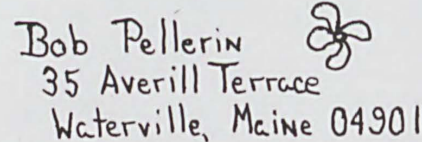 Bob Pellerin
35 Averill Terrace
Waterville, Maine 04901